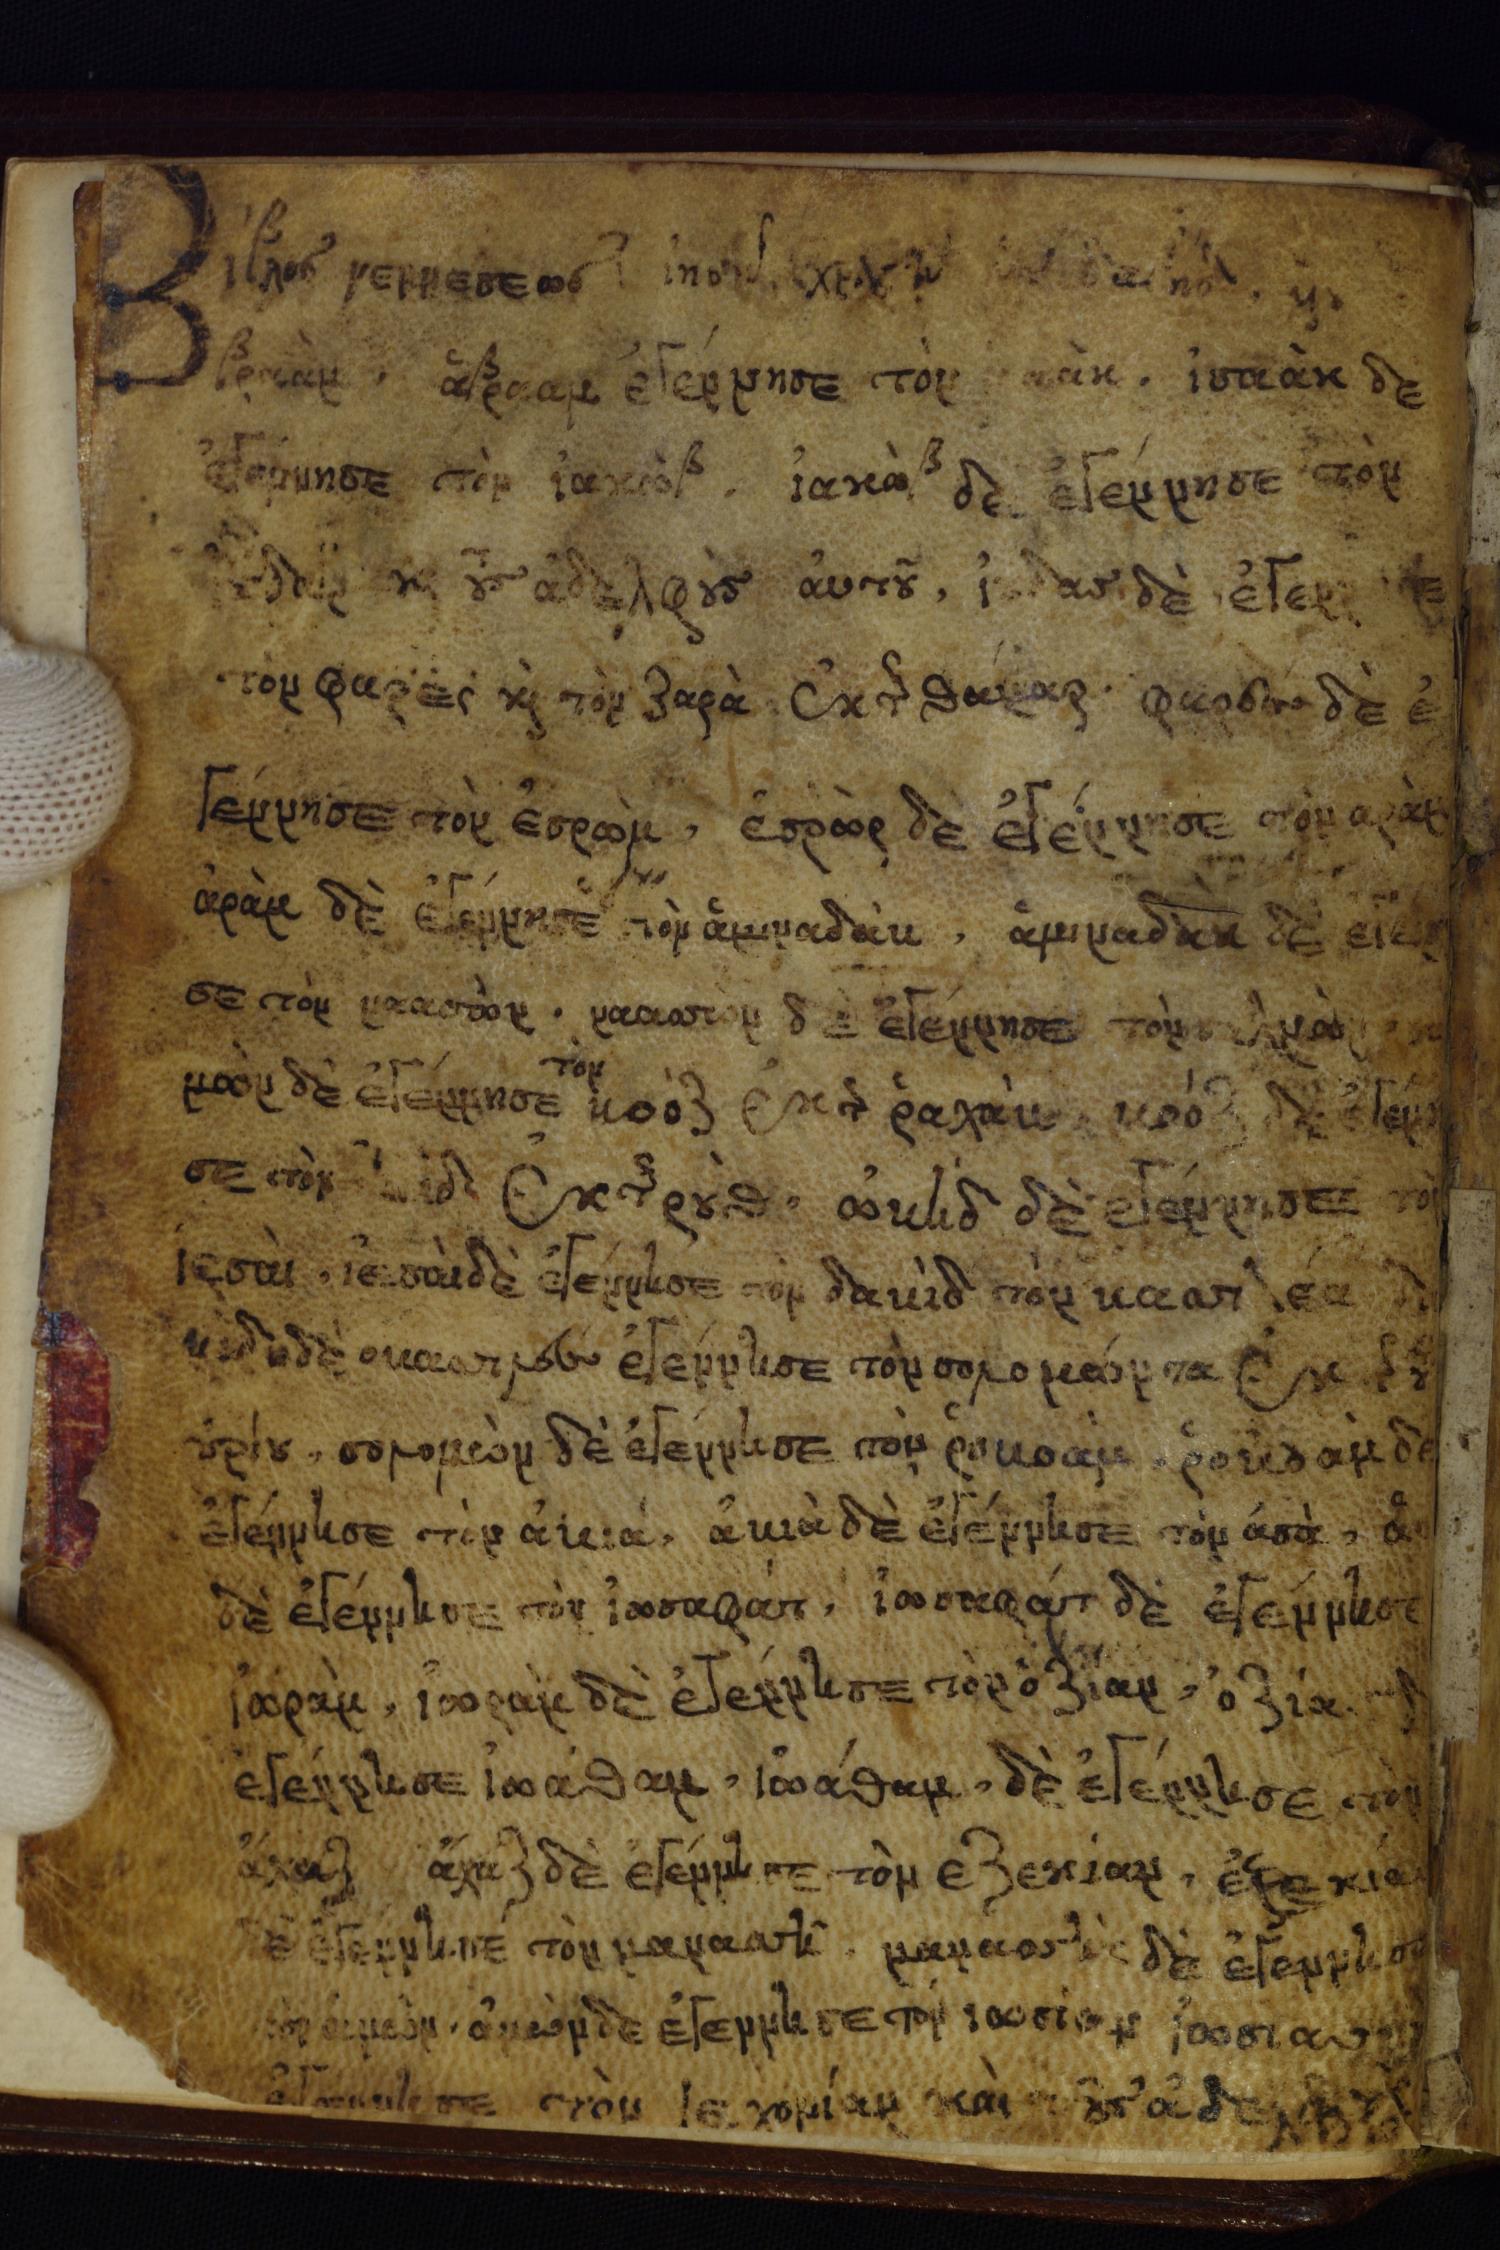 Βίβλος γεννεσεως ἰησοῦ χριστοῦ
βραὰμ, ἀβρααμ ἐγέννησε τὸν ἰσαὰκ. ἰσαὰκ δε
ἐγέννησε τὸν ἰακὼβ. ἰακὼβ δὲ ἐγέννησε τὸν
ἰούδαν κ τοὺς ἀδελφοὺς ἀυτοῦ, ἰούδας δὲ ἐγεν
τὸν φαρὲς κ τὸν ζαρὰ ἐκ τῆς θάμαρ. φαρὲς δὲ ἐ
γέννησε τὸν ἐσρὼμ, ἐσρὼμ δὲ ἐγέννησε τὸν αρὰμ
ἀρὰμ δὲ ἐγέννησε τὸν ἀμιναδὰκ, ἀμιναδὰκ δὲ ἐγεν
σε τὸν ναασσὼν. ναασσὼν δὲ ἐγέννησε τὸν
μὼν δὲ ἐγέννησε τὸν κοὸζ ἐκ τῆς ῥαχὰκ, κοόζ δὲ ἐγέν
σε τὸν ἐκ τῆς ροὺθ, ὠκὴδ δὲ ἐγέννησε τὸν
ἰεσὰι, ἰεσὰι δὲ ἐγέννησε τὸν δακὶδ τὸν κασιλέα δα
κὶδ δὲ ο κασιλεὺς ἐγέννησε τὸν σολομώντα ἐκ τῆς
οὐρίου, σολομὼν δὲ ἐγέννησε τὸν ῥοκοὰμ, ῥοκοὰμ δὲ
ἐγέννησε τὸν ἀκιά, ἀκιὰ δὲ ἐγέννησε τὸν ἀσὰ, ἀσ
δὲ ἐγέννησε τὸν ἰωσαφάτ, ἰωσαφάτ δὲ ἐγέννησε
ἰωρὰμ, ἰωρὰμ δὲ ἐγέννησε τὸν ὀζίαν, ὀζία δ
ἐγέννησε ἰωάθαμ, ἰωάθαμ, δὲ ἐγέννησε τὸν
ἀχαζ ἀχαζ δὲ ἐγέννησε τὸν εζεκίαν, ἐζεκία
δὲ ἐγέννησε τὸν μανασσῆ. μανασσὴς δὲ ἐγεννησε
τὸν ἀμὼν, ἀμὼν δὲ ἐγεννησε τὸν ιωσίαν ἰωσιας
ἐγεννησε τὸν ἰεχονίαν καὶ τοὺς ἀδελφοὺς